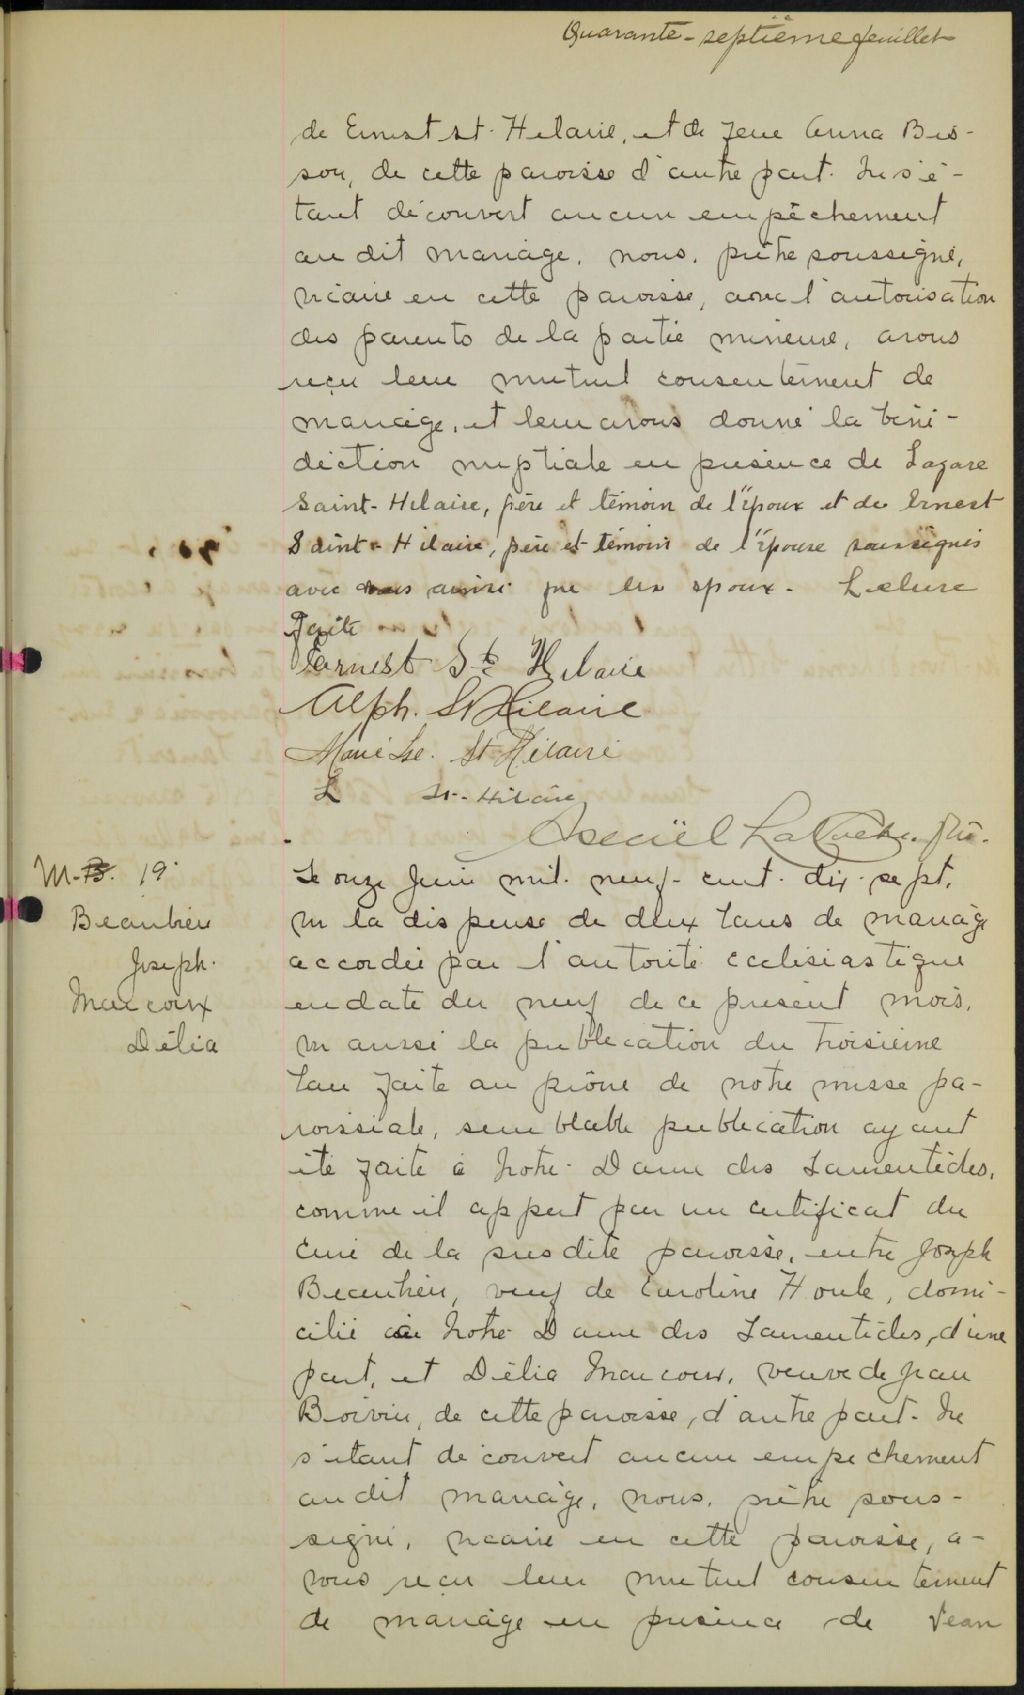 Quarante-septième feuillet
de Ernest St-Hilaire, et de feue Anna Bis-
son, de cette paroisse d'autre part. Ne s'é-
tant découvert aucun empêchement
au dit mariage, nous, prêtre soussigné,
vicaire en cette paroisse, avec l'autorisation
des parents de la partie mineure, avons
reçu leur mutuel consentement de
mariage, et leur avons donné la béné-
diction nuptiale en présence de Lazare
Saint-Hilaire, père et témoin de l'époux et de Ernest
Saint-Hilaire, père et témoin de l'épouse soussignés
avec nous ainsi que les époux. Lecture
faite
Earnest St Hilaire
Alph. St Hilaire
Marie Lse. St Hilaire
L St-Hilaire
Ptre.
M. B. 19
Beaubien
Joseph.
Marcoux
Délia
Le onze Juin mil-neuf-cent-dix-sept,
vu la dispense de deux bans de mariage
accordée par l'autorité ecclésiastique
en date du neuf de ce présent mois,
vu aussi la publication du troisième
ban faite au prône de notre messe pa-
roissiale, semblable publication ayant
été faite à Notre-Dame des Laurentides,
comme il appert par un certificat du
Curé de la susdite paroisse, entre Joseph
Beaubien, veuf de Caroline Houle, domi-
cilié à Notre-Dame des Laurentides, d'une
part, et Délia Marcoux, veuve de Jean
Boivin, de cette paroisse, d'autre part. Ne
s'étant découvert aucun empêchement
au dit mariage, nous, prêtre sous-
signé, vicaire en cette paroisse, a-
vons reçu leur mutuel consentement
de mariage en présence de Jean